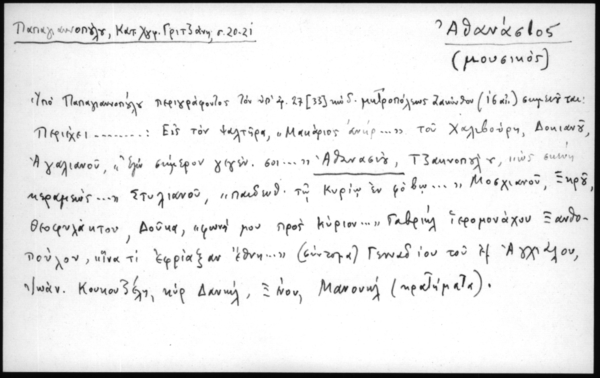 Παπαγιαννοπούλου, Κατ. Χφ. Γριτζάνη, σ. 20-21
Ἀθανάσιος
(μουσικός)
Ὑπὸ Παπαγιαννοπούλου περιγράφοντος τὸν ὑπ' ἀ. 27 [35] κώδ. μητροπόλεως Ζακύνθου
Περιέχει ........: Εἰς τὸν ψαλτῆρα, "Μακάριος ἀνήρ..." τοῦ Χαλιβούρη, Δοκιανοῦ,
Ἀγαλιανοῦ, "ἐγὼ σήμερον γεγέν. σοι..." Ἀθανασίου, Τζακνοπούλου, "ὡς σκεύη
κεραμέως..." Στυλιανοῦ, "παιδωθ. τῷ Κυρίῳ ἐν φόβῳ..." Μοσχιανοῦ, Ξηροῦ,
Θεοφυλάκτου, Δούκα, "φωνῇ μου πρὸς Κύριον..." Γαβριὴλ ἱερομονάχου Ξανθο-
πούλου, "ἵνα τί ἐφρύαξαν ἔθνη..." (σύντομα) Γενναδίου τοῦ ἐξ Ἀγχιάλου,
Ἰωάν. Κουκουζέλη, κὺρ Δανιήλ, Ξένου, Μανουήλ (κρατήματα).